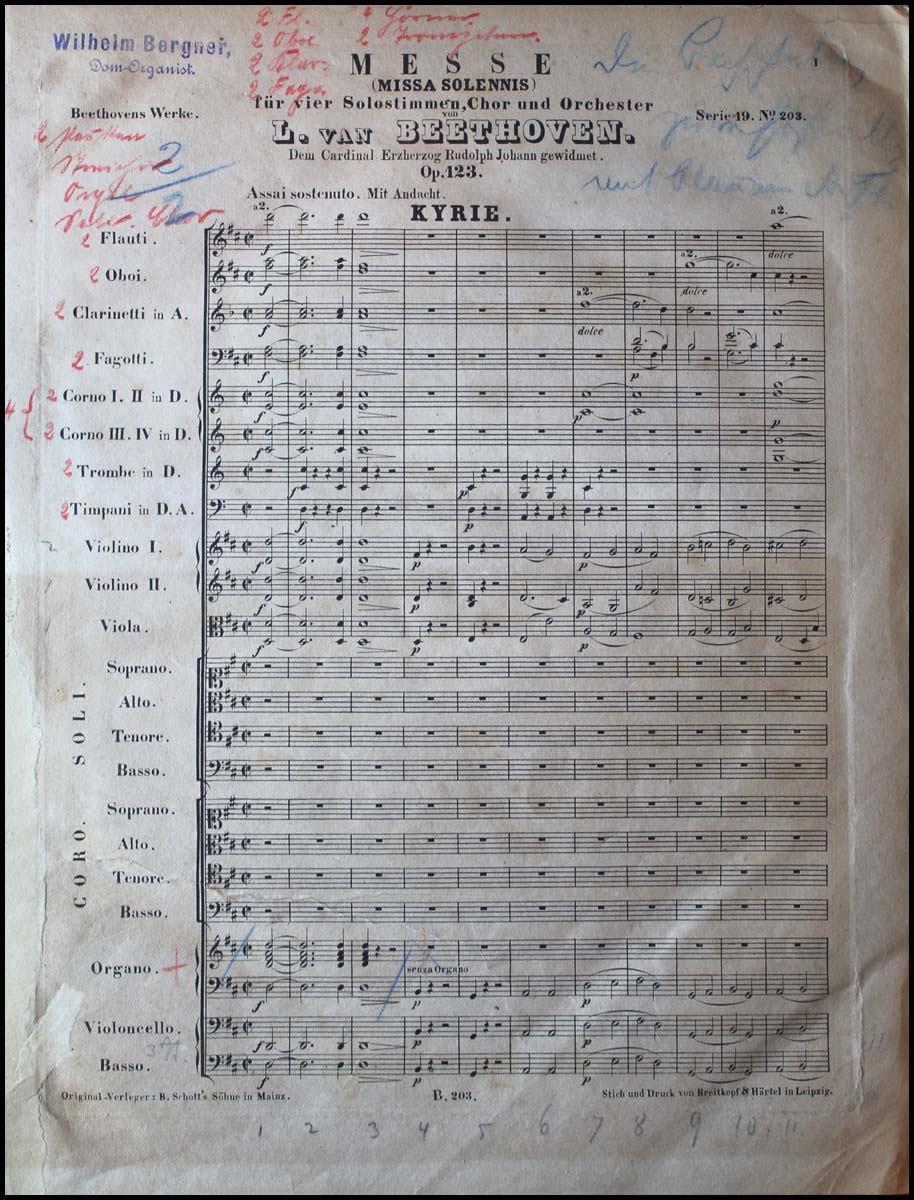 2 Fl.
2 Oboe
2 Klar.
2 Fago
4 Hörner
2 Trompeten
Wilhelm Bergner,
Dom-Organist.
1
MESSE
(MISSA SOLENNIS)
für vier Solostimmen, Chor und Orchester
von
L. VAN BEETHOVEN.
Beethovens Werke.
Serie 19. No. 203.
Dem Cardinal Erzherzog Rudolph Johann gewidmet.
Op. 123.
2 Pauken
2
Orgel
Chor
Assai sostenuto. Mit Andacht.
KYRIE.
a2.
a2.
2 Flauti.
f
dolce
a2.
2 Oboi.
f
dolce
a2.
2 Clarinetti in A.
f
dolce
2 Fagotti.
f
p
4
2 Corno I. II in D.
f
p
p
2 Corno III. IV in D.
f
2 Trombe in D.
f
p
2 Timpani in D. A.
f
p
2 Violino I.
f
p
p
Violino II.
f
p
p
Viola.
f
p
p
SOLI.
Soprano.
Alto.
Tenore.
Basso.
CORO.
Soprano.
Alto.
Tenore.
Basso.
Organo. +
senza Organo
f
p
p
Violoncello.
f
Basso.
f
p
p
Original-Verleger: B. Schott's Söhne in Mainz.
B. 203.
Stich und Druck von Breitkopf & Härtel in Leipzig.
1 2 3 4 5 6 7 8 9 10 11